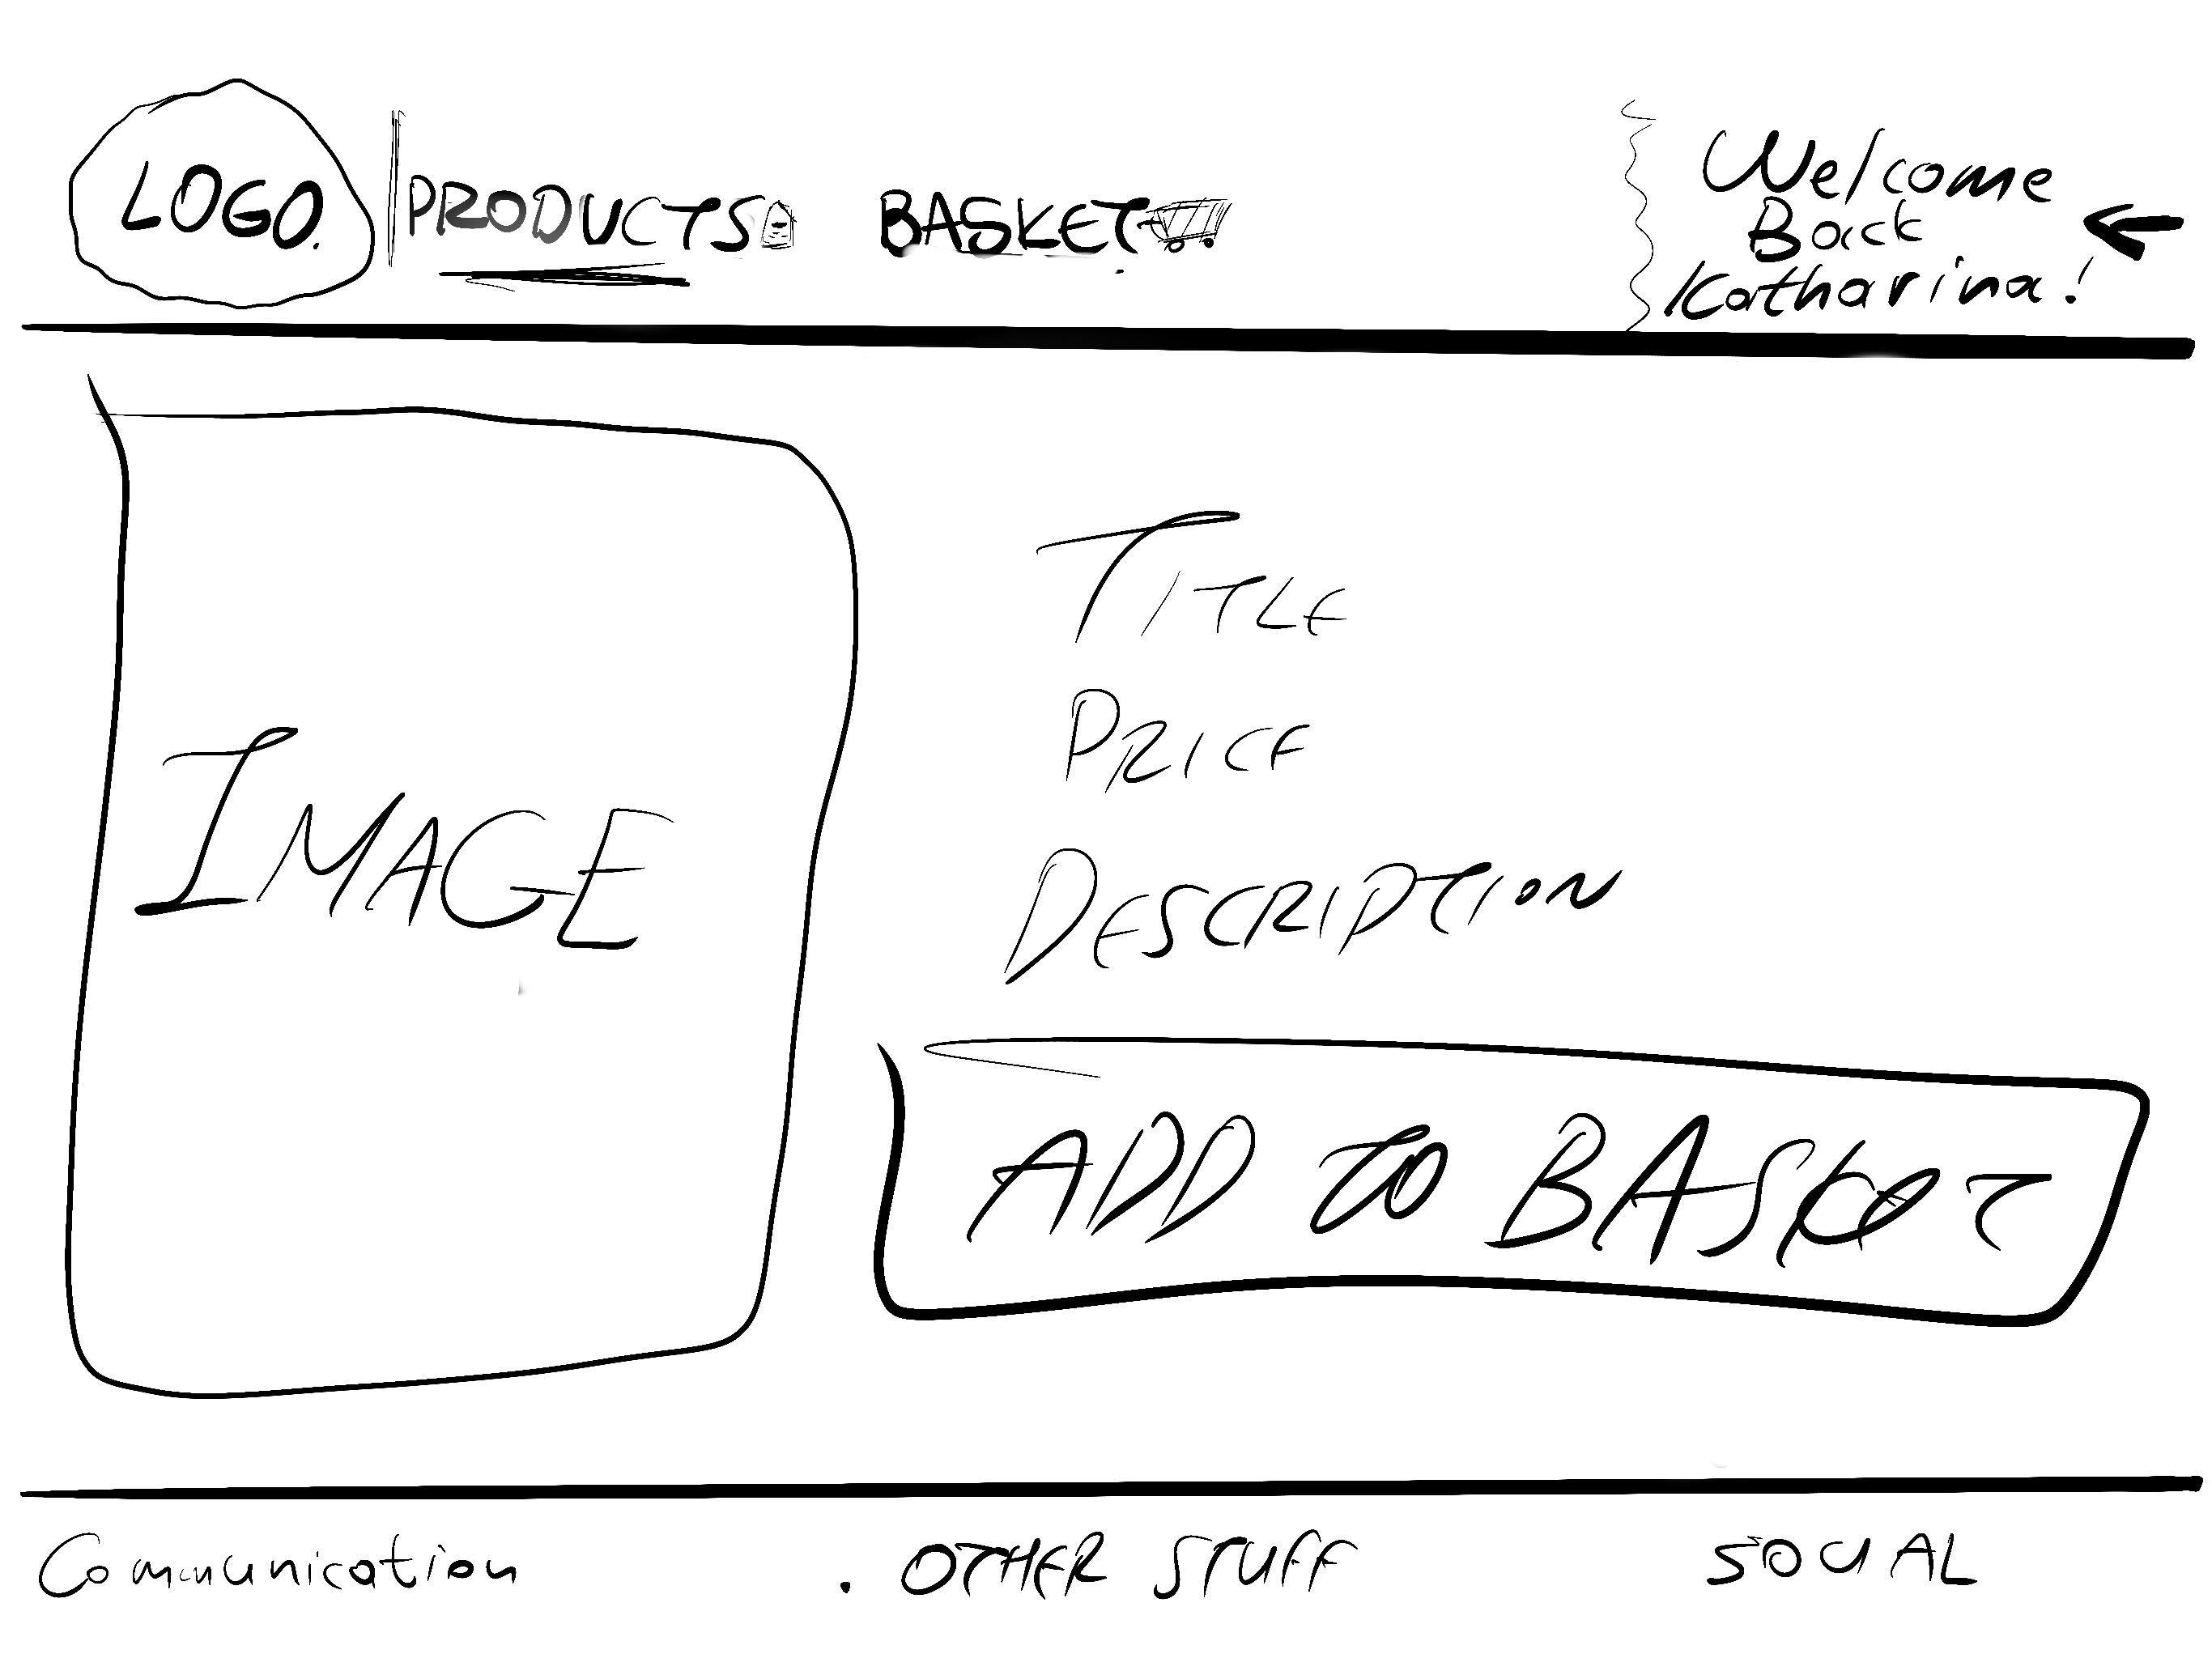 LOGO.
PRODUCTS BASKET
Welcome
Back
Katharina!
IMAGE
TITLE
PRICE
DESCRIPTION
ADD to BASKET
Communication
. OTHER STUFF
SOCIAL